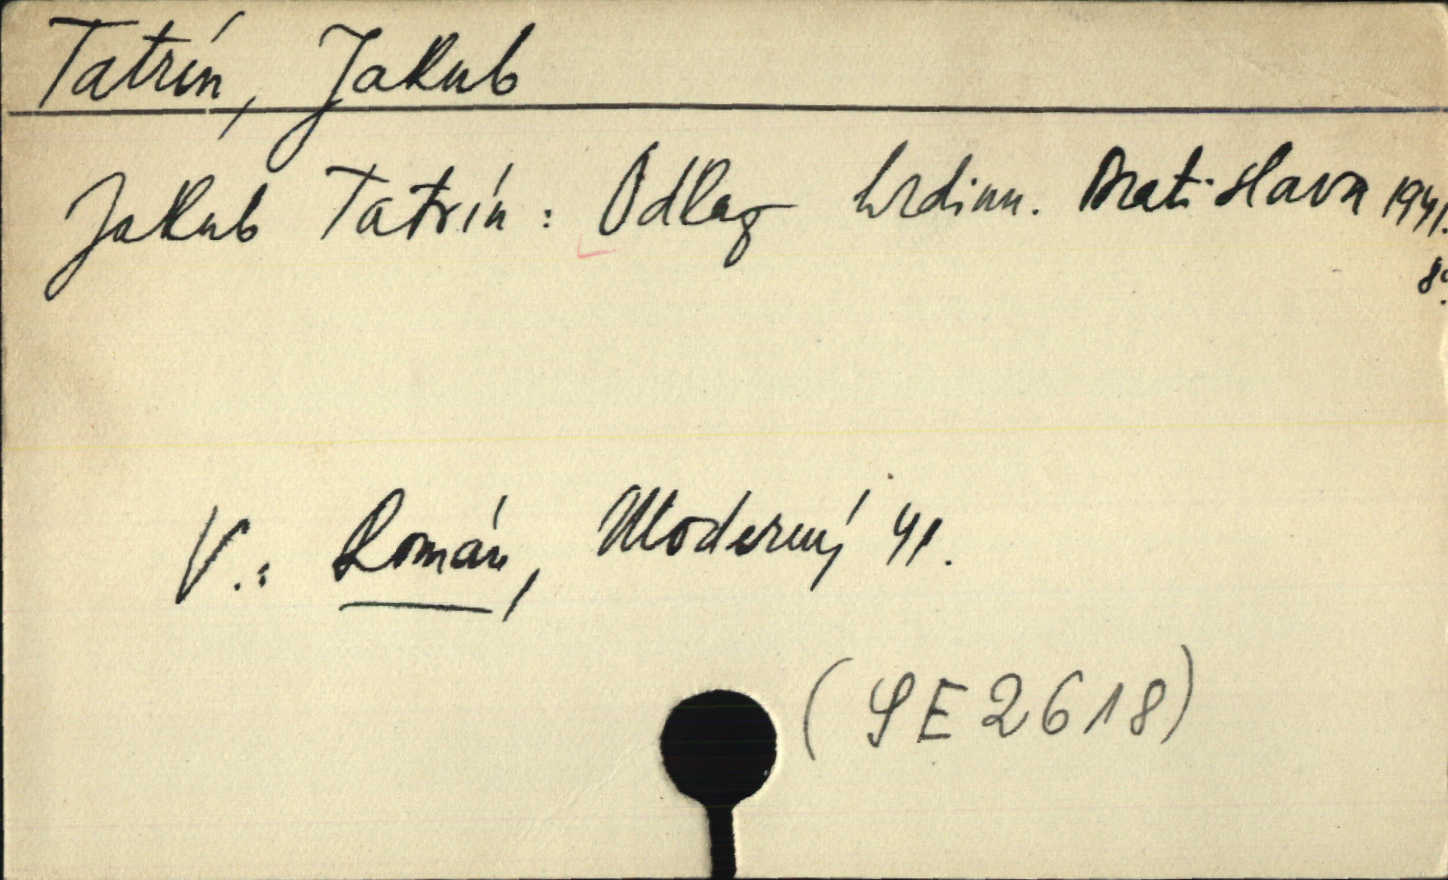 Tatrín, Jakub
Jakub Tatrín: Odkaz hrdinu. Bratislava 1941.
8°.
V.: Román, Moderný 41.
(SE2618)